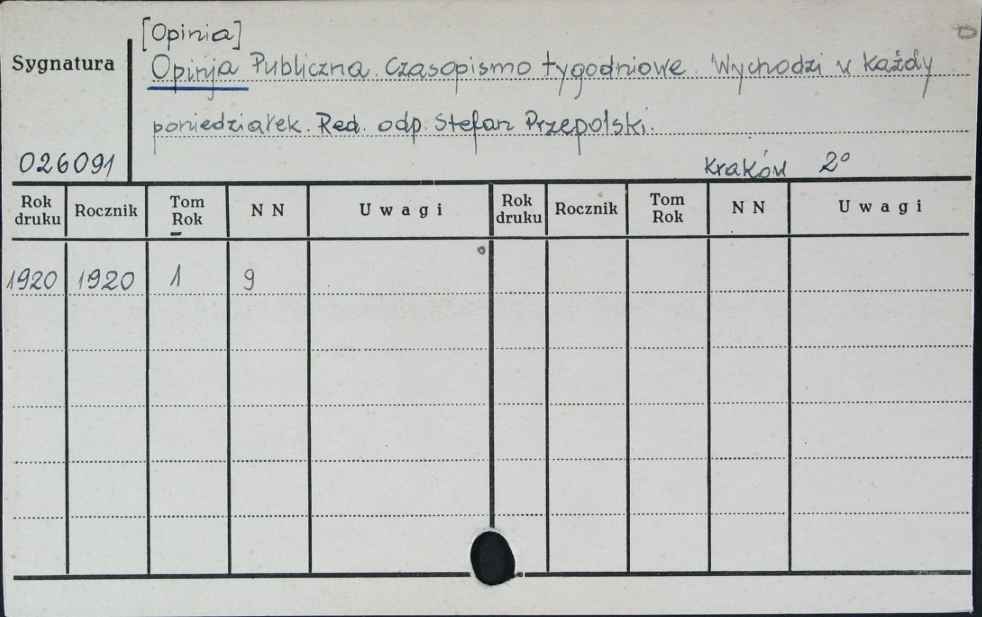 [Opinia]
Sygnatura
Opinja Publiczna. Czasopismo tygodniowe. Wychodzi w każdy
poniedziałek. Red. odp. Stefan Przepolski.
026091
Kraków 2°
Rok druku Rocznik Tom Rok N N Uwagi Rok druku Rocznik Tom Rok N N Uwagi
1920 1920 1 9